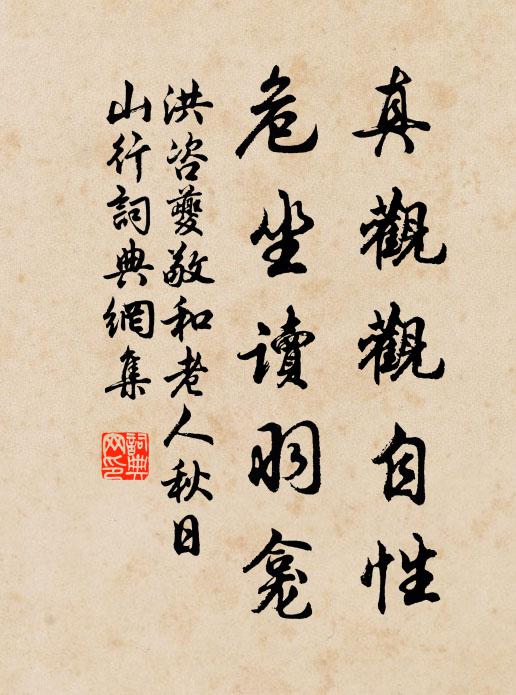 真觀觀自性
危坐讀明龕
洪咨夔敬和老人秋日
山行詞典網集
詞典
网印